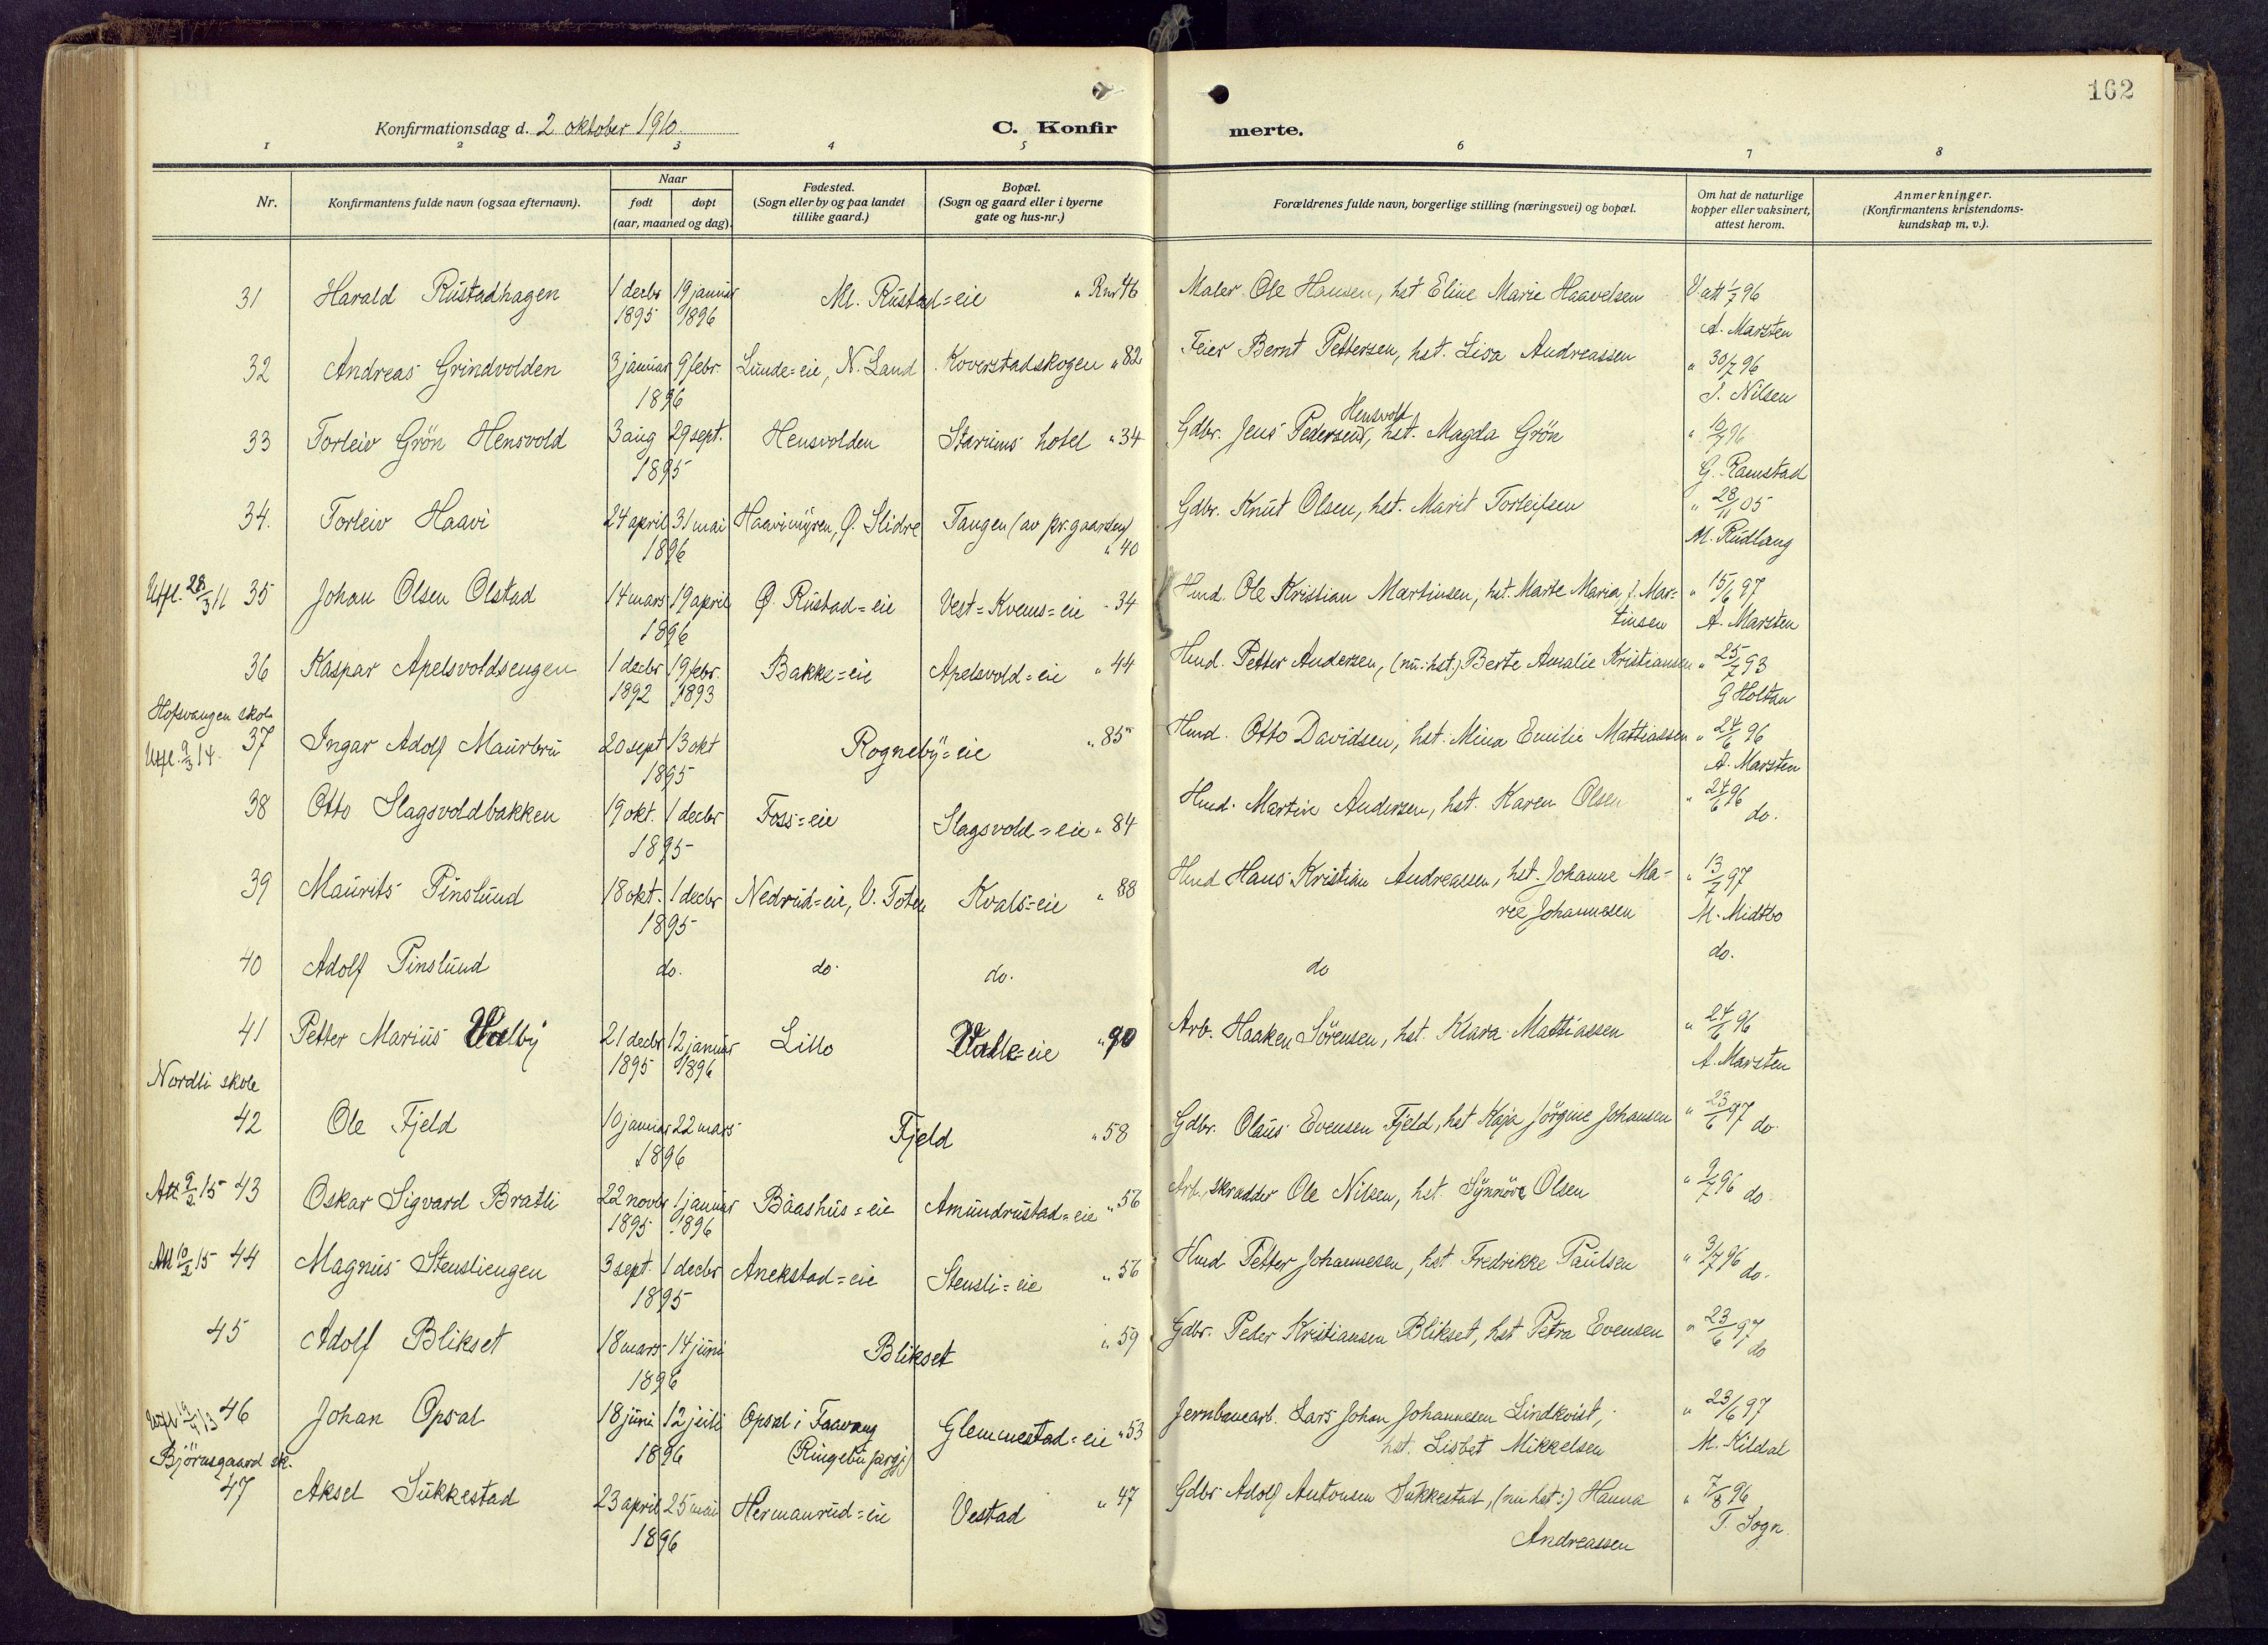 162
Konfirmationsdag d. 2 oktober 1910.
C. Konfirmerte.
1 2 3 4 5 6 7 8
Nr.
Konfirmantens fulde navn (ogsaa efternavn).
Naar
født døpt
(aar, maaned og dag).
Fødested.
(Sogn eller by og paa landet
tillike gaard.)
Bopæl.
(Sogn og gaard eller i byerne
gate og hus-nr.)
Forældrenes fulde navn, borgerlige stilling (næringsvei) og bopæl.
Om hat de naturlige
kopper eller vaksinert,
attest herom.
Anmerkninger.
(Konfirmantens kristendoms-
kundskap m. v.).
31 Harald Rustadhagen 1 decbr 19 januar Ml. Rustad=eie " Rnr 46 Maler Ole Hansen, hst Eline Marie Haavelsen V. att 1/7 96
1895 1896 A. Marsten
32 Andreas Grindvolden 3 januar 9 febr. Lunde=eie, N. Land Koverstadskogen " 82 Feier Bernt Pettersen, hst. Lisa Andreassen " 30/7 96
1896 J. Nilsen
Hensvold
33 Torleiv Grön Hensvold 3 aug 29 sept. Hensvolden Stariums hotel " 34 Gdbr. Jens Pedersen, hst. Magda Grön " 10/7 96
1895 G. Ramstad
34. Torleiv Haavi 24 april 31 mai Haavimyren, Ø. Slidre Tangen (av pr.gaarden) Gdbr. Knut Olsen, hst. Marit Torleifsen " 28/11 05
1896 " 40 M. Rudlang
Utfl. 28/3 11 35 Johan Olsen Olstad 14 mars 19 april Ø. Rustad=eie Vest=Kvems=eie " 34 Hmd. Ole Kristian Martinsen, hst. Marte Maria f. Mar= " 15/6 97
1896 tinsen A. Marsten
36 Kaspar Apelsvoldsengen 1 decbr 19 febr. Bakke=eie Apelsvold=eie " 44 Hmd. Petter Andersen, (nu: hst.) Berte Amalie Kristiansen " 25/7 93
1892 1893 G Holtan
Hofsvangen skole
Utfl. 9/3 14. 37 Ingar Adolf Maurbru 20 sept 13 okt Rogneby=eie " 85 Hmd. Otto Davidsen, hst. Mina Emilie Mattiassen " 24/6 96
1895 A. Marsten
38 Otto Slagsvoldbakken 19 okt. 1 decbr Foss=eie Slagsvold=eie " 84 Hmd. Martin Andersen, hst. Karen Olsen " 24/6 96
1895 do.
39 Maurits Pinslund 18 okt. 1 decbr Nedrud=eie, V. Toten Kvals=eie " 88 Hmd Hans Kristian Andreassen, hst. Johanne Ma- " 13/7 97
1895 rie Johannesen M. Midtbo
40 Adolf Pinslund do. do. do. do do.
41 Petter Marius Valby 21 decbr 12 januar Lillo Valle=eie " 90 Arb. Haaken Sörensen, hst. Klara Mattiassen " 24/6 96
1895 1896 A. Marsten
Nordli skole
42 Ole Fjeld 10 januar 22 mars Fjeld " 58 Gdbr. Olaus Evensen Fjeld, hst Kaja Jörgine Johansen " 23/6 97 do.
1896
Att. 9/2 15 43 Oskar Sigvard Bratli 22 novbr 1 januar Baashus=eie Amundrustad=eie " 56 Arb., skrædder Ole Nilsen, hst. Synnöve Olsen " 9/7 96 do.
1895 1896
Att 10/2 15 44 Magnus Stensliengen 3 sept. 1 decbr Anekstad=eie Stensli=eie " 56 Hmd Petter Johannesen, hst Fredrikke Paulsen " 3/7 96 do.
1895
45 Adolf Blikset 18 mars 14 juni Blikset " 59 Gdbr. Peder Kristiansen Blikset, hst Petra Evensen " 23/6 97 do
1896
Utfl 19/4 13 46 Johan Opsal 18 juni 12 juli Opsal i Faavang Glemmestad=eie " 53 Jernbanearb. Lars Johan Johannesen Lindkvist, " 23/6 97
1896 Ringebu prgj) hst. Lisbet Mikkelsen M. Kildal
Björnsgaard sk.
47 Aksel Sukkestad 23 april 25 mai Hermanrud=eie Vestad " 47 Gdbr Adolf Antonsen Sukkestad, (nu hst:) Hanna " 7/8 96
1896 Andreassen T. Sogn.